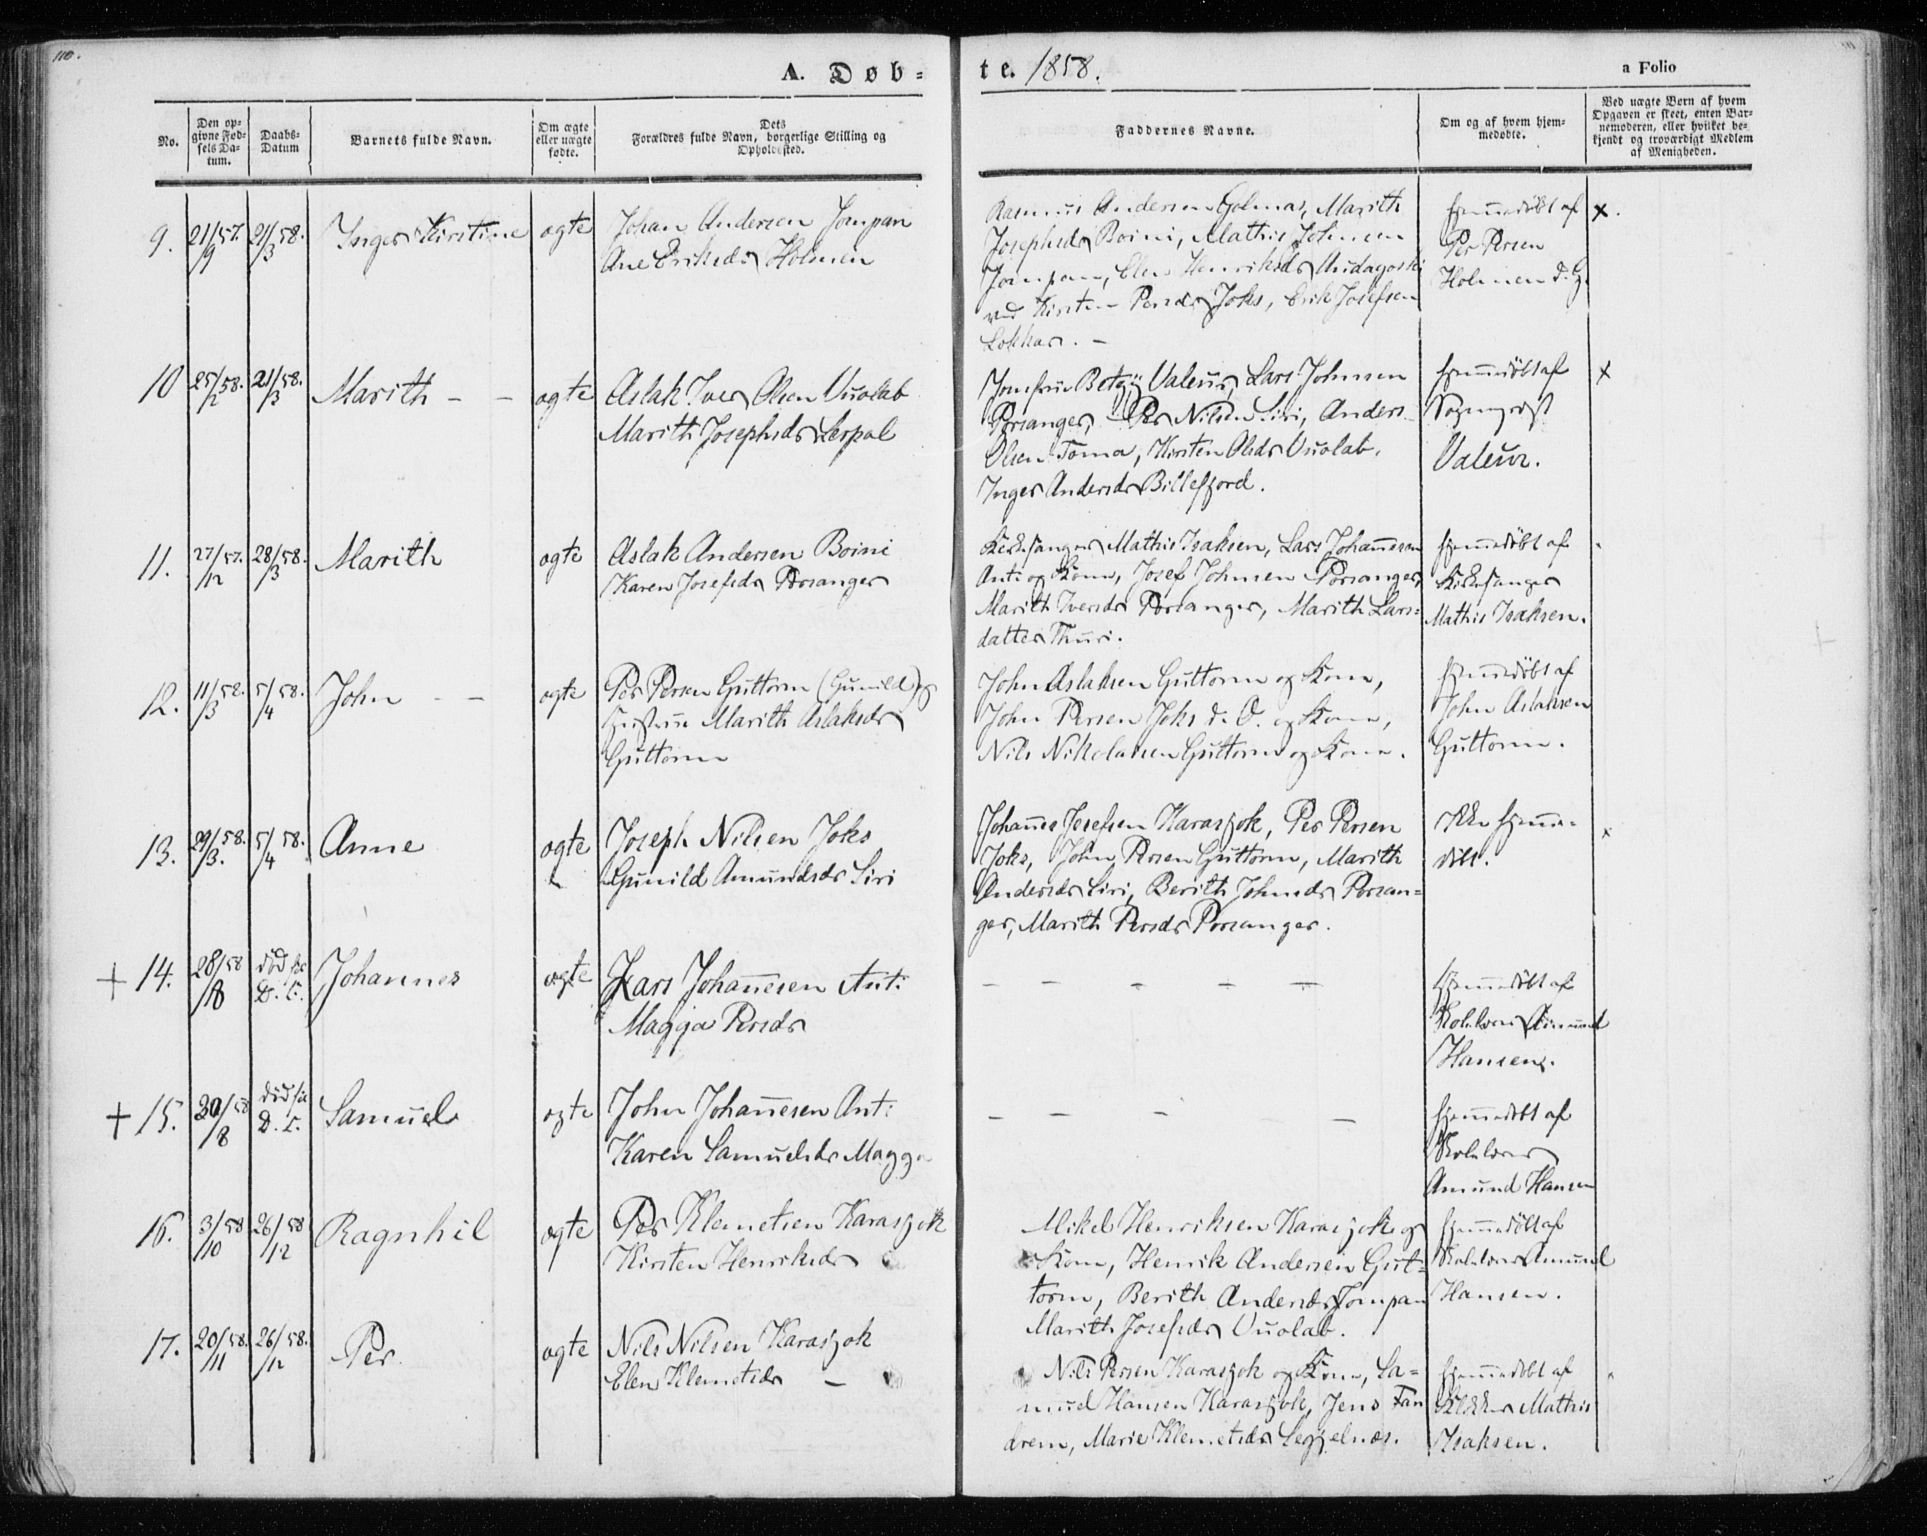 110.
A. Døb=
te. 1858.
a Folio
No.
Den op=
givne Fød=
sels Da=
tum.
Daabs=
Datum
Barnets fulde Navn.
Om ægte
eller uægte
fødte.
Dets
Forældres fulde Navn, borgerlige Stilling og
Opholdssted.
Faddernes Navne.
Om og af hvem hjem=
medøbte.
Ved uægte Børn af hvem
Opgaven er skeet, enten Bar=
nemoderen, eller hvilket be=
kjendt og troværdigt Medlem
af Menigheden.
9. 21/9 57. 21/3 58. Inger Kirstine ægte
Johan Andersen Jompan
Ane Eriksdr Holmen
Rasmus Andersen Golmas, Marith
Josephsdr Boini, Mathis Johnsen
Jompan, Elen Henriksdr Andagoski
Kirsten Persdr Joks, Erik Josefsen
Lokkar. –
hjemmedöbt af
Per Persen
Holmen d. Y.
x.
10 25/12 58. 21/3 58. Marith – – ægte
Aslak Iver Olsen Vuolab
Marith Josephsdr Lerpal
Jomfru Betzÿ Valeur, Lars Johnsen
Porsanger, Per Nilsen Siri, Anders
Olsen Toma, Kirsten Olsdr Vuolab,
Inger Andersdr Billefjord.
hjemmedöbt af
Sogneprest
Valeur.
x
11. 27/12 57. 28/3 58. Marith ægte
Aslak Andersen Boini
Karen Josefsdr Porsanger
Kirkesanger Mathis Isaksen, Lars Johannesen
Anti og Kone, Josef Johnsen Porsanger,
Marith Iversdr Porsanger, Marith Lars=
datter Thuri.
hjemmedöbt af
Kirkesanger
Mathis Isaksen.
12. 11/3 58. 5/4 58. John – – ægte
Per Persen Guttorm (Gunild) og
Hustru Marith Aslaksdr
Guttorm
John Aslaksen Guttorm og Kone,
John Persen Joks d. O. og Kone,
Nils Nikolaisen Guttorm og Kone.
hjemmedöbt af
John Aslaksen
Guttorm.
13. 29/3. 58. 5/4 58. Anne ægte
Joseph Nilsen Joks
Gunild Amundsdr Siri
Johannes Josefsen Karasjok, Per Persen
Joks, John Persen Guttorm, Marith
Andersdr Siri, Berith Johnsdr Porsan=
ger, Marith Persdr Porsanger.
Ikke hjemme=
döbt.
x
+ 14. 28/8 58 död för D. T. Johannes ægte
Lars Johannesen Anti
Magga Persdr
– – – – –
hjemmedöbt af
Skolelærer Amund
Hansen.
+ 15. 30/8 58 död för D. T. Samuel ægte
John Johannesen Anti
Karen Samuelsdr Magga
– – – –
hjemmedöbt af
Skolelærer
Amund Hansen
16. 3/10 58 26/12 58 Ragnhil ægte
Per Klemetsen Karasjok
Kirsten Henriksdr
Mikel Henriksen Karasjok og
Kone, Henrik Andersen Gut=
torm, Berith Andersdr Jompan
Marith Josefsdr Vuolab.
hjemmedöbt af
Skolelærer Amund
Hansen.
17. 20/11 58. 26/12 58. Per ægte
Nils Nilsen Karasjok
Elen Klemetsdr –
Nils Persen Karasjok og Kone, Sa=
muel Hansen Karasjok, Jens Fan
drem, Marie Klemetsdr Seggelnæs.
hjemmedöbt af
Klokker Mathis
Isaksen.